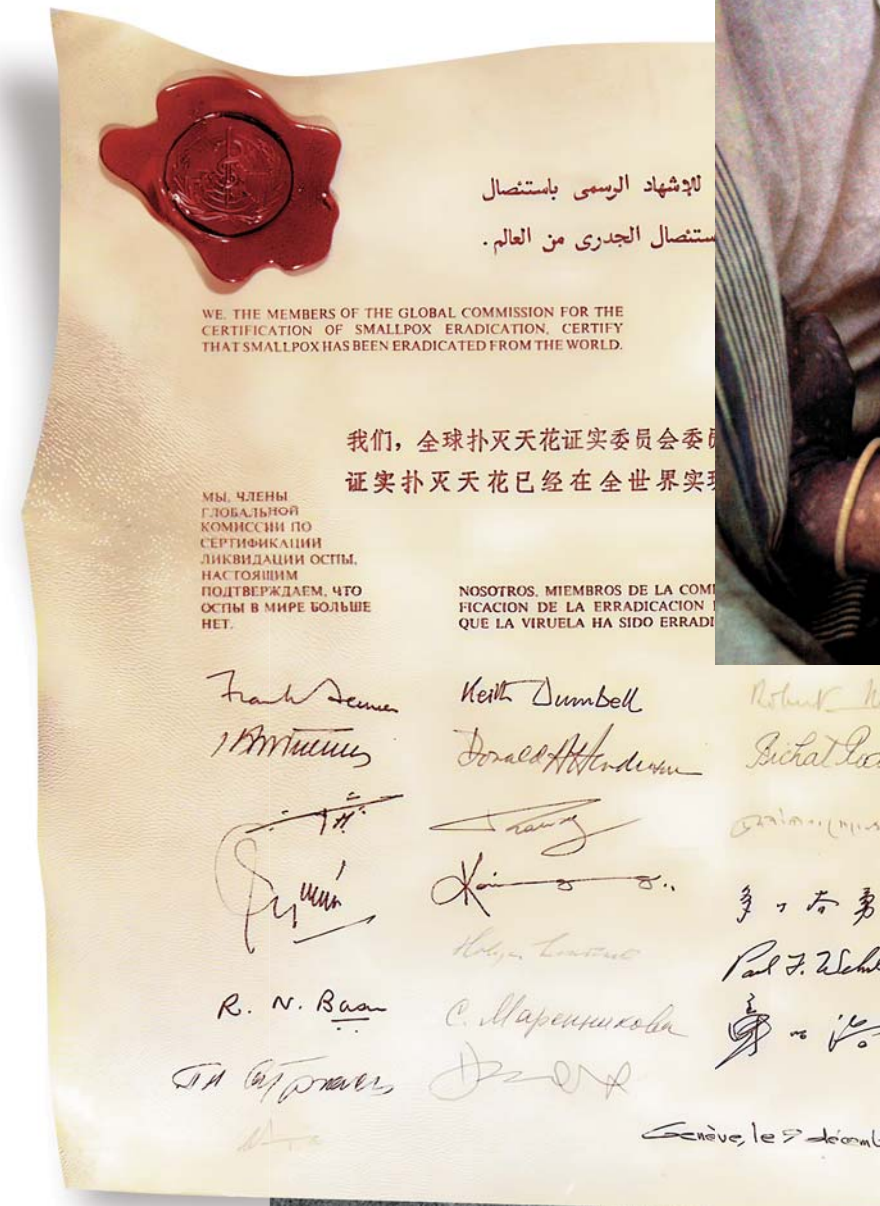 للإشهاد الرسمى باستئصال
ستئصال الجدرى من العالم.
WE, THE MEMBERS OF THE GLOBAL COMMISSION FOR THE
CERTIFICATION OF SMALLPOX ERADICATION, CERTIFY
THAT SMALLPOX HAS BEEN ERADICATED FROM THE WORLD.
我们，全球扑灭天花证实委员会委
证实扑灭天花已经在全世界实
МЫ, ЧЛЕНЫ
ГЛОБАЛЬНОЙ
КОМИССИИ ПО
СЕРТИФИКАЦИИ
ЛИКВИДАЦИИ ОСПЫ,
НАСТОЯЩИМ
ПОДТВЕРЖДАЕМ, ЧТО
ОСПЫ В МИРЕ БОЛЬШЕ
НЕТ.
NOSOTROS, MIEMBROS DE LA COMI
FICACION DE LA ERRADICACION
QUE LA VIRUELA HA SIDO ERRADI
Frank Fenner
Keith Dumbell
Robert
Donald A Henderson
Bichat
R. N. Basu
С. Маренникова
Paul F. Wehrle
Genève, le 9 décemb